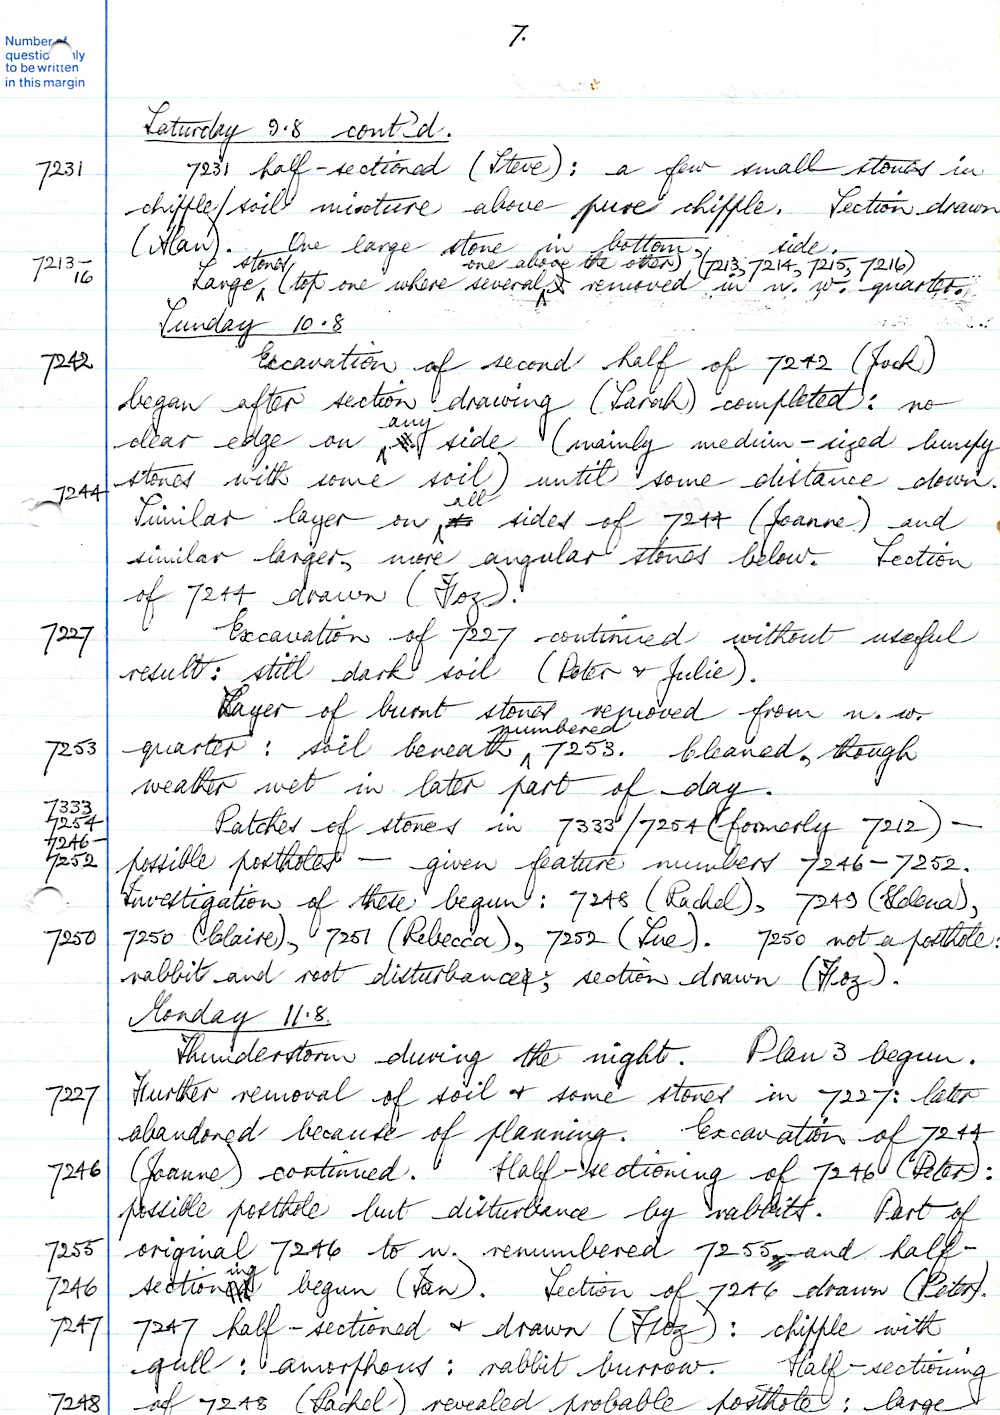 7.
Number of
question only
to be written
in this margin
Saturday 9.8 cont'd.
7231 7231 half-sectioned (Steve): a few small stones in
chipple/soil mixture above pure chipple. Section drawn
(Alan). One large stone in bottom, side.
7213-16 Large stones (top one where several one above the other) (7213, 7214, 7215, 7216) removed in n. w. quarter.
Sunday 10.8
7242 Excavation of second half of 7242 (Jock)
began after section drawing (Sarah) completed: no
clear edge on any side (mainly medium-sized lumpy
stones with some soil) until some distance down.
7244 Similar layer on all sides of 7244 (Joanne) and
similar larger, more angular stones below. Section
of 7244 drawn (Floz).
7227 Excavation of 7227 continued without useful
result: still dark soil (Peter & Julie).
Layer of burnt stones removed from n. w.
7253 quarter: soil beneath numbered 7253. Cleaned, though
weather wet in later part of day.
7333 7254 Patches of stones in 7333/7254 (formerly 7212) —
7246-7252 possible postholes — given feature numbers 7246-7252.
Investigation of these begun: 7248 (Rachel), 7249 (Helena),
7250 7250 (Claire), 7251 (Rebecca), 7252 (Sue). 7250 not a posthole:
rabbit and root disturbance; section drawn (Floz).
Monday 11.8.
Thunderstorm during the night. Plan 3 begun.
7227 Further removal of soil & some stones in 7227: later
abandoned because of planning. Excavation of 7244
7246 (Joanne) continued. Half-sectioning of 7246 (Peter):
possible posthole but disturbance by rabbits. Part of
7255 original 7246 to n. renumbered 7255 and half-
7246 sectioning begun (Ian). Section of 7246 drawn (Peter).
7247 7247 half-sectioned & drawn (Floz): chipple with
gull: amorphous: rabbit burrow. Half-sectioning
7248 of 7248 (Rachel) revealed probable posthole: large